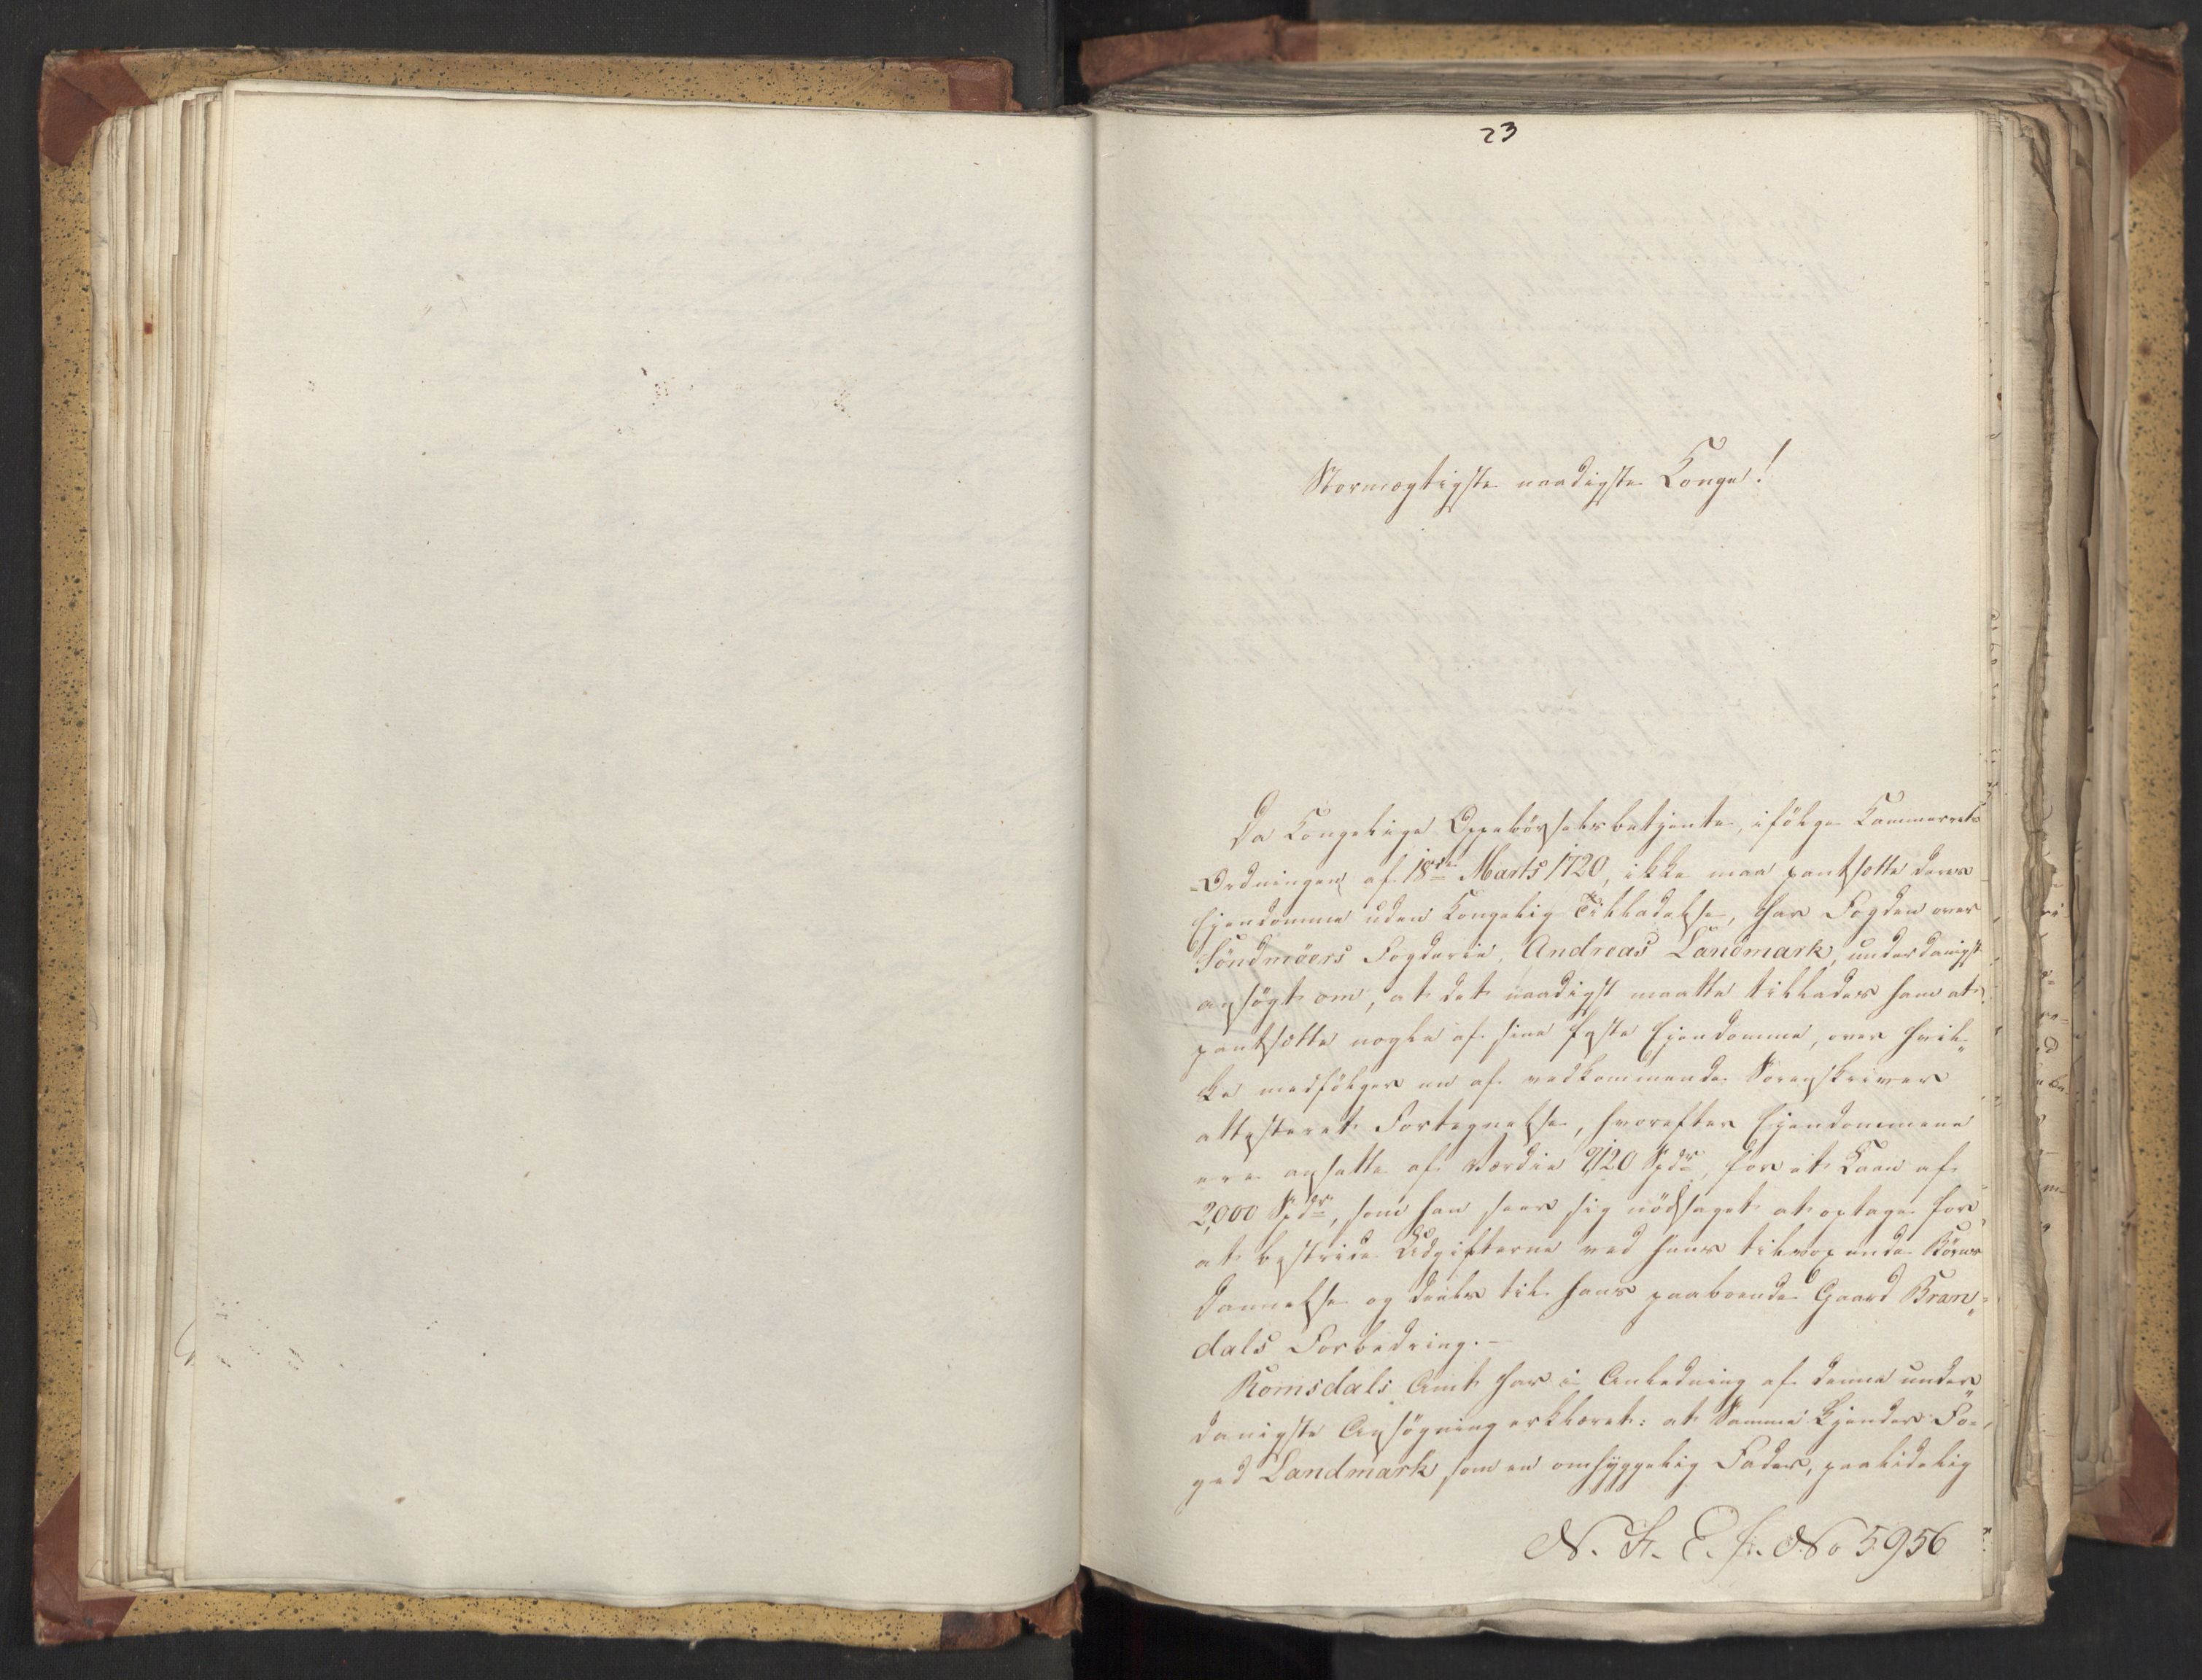 23
Stormægtigste naadigste Konge!
Da Kongelige Oppebörselsbetjente, ifölge Kammerrets
-Ordningen af 18de Marts 1720, ikke maa pantsætte deres
Ejendomme uden Kongelig Tilladelse, har Fogden over
Söndmöers Fogderie, Andreas Landmark, underdanigst
ansögt om, at det naadigst maatte tillades ham at
pantsætte nogle af sine faste Ejendomme, over hvil„
ke medfölger en af vedkommende Sorenskriver
attesteret Fortegnelse, hvorefter Ejendommene
ere ansatte af Værdie 9,120 Spdr, for et Laan af
2,000 Spdr, som han seer sig nödsaget at optage for
at bestride Udgifterne ved hans tilvoxende Börns
Dannelse og deels til hans paaboende Gaard Bran„
dals Forbedring.—
Romsdals Amt har i Anledning af denne under
danigste Ansögning erklæret: at Samme kjender Fo-
ged Landmark som en omhyggelig Fader, paalidelig
N. F. E. fr. No 5956